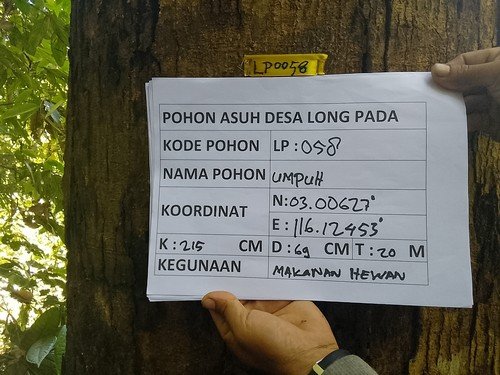 LP0058
POHON ASUH DESA LONG PADA
KODE POHON LP : 058
NAMA POHON UMPUH
KOORDINAT N:03.00627°
E : 116.12453°
K : 215 CM D : 69 CM T : 20 M
KEGUNAAN MAKANAN HEWAN